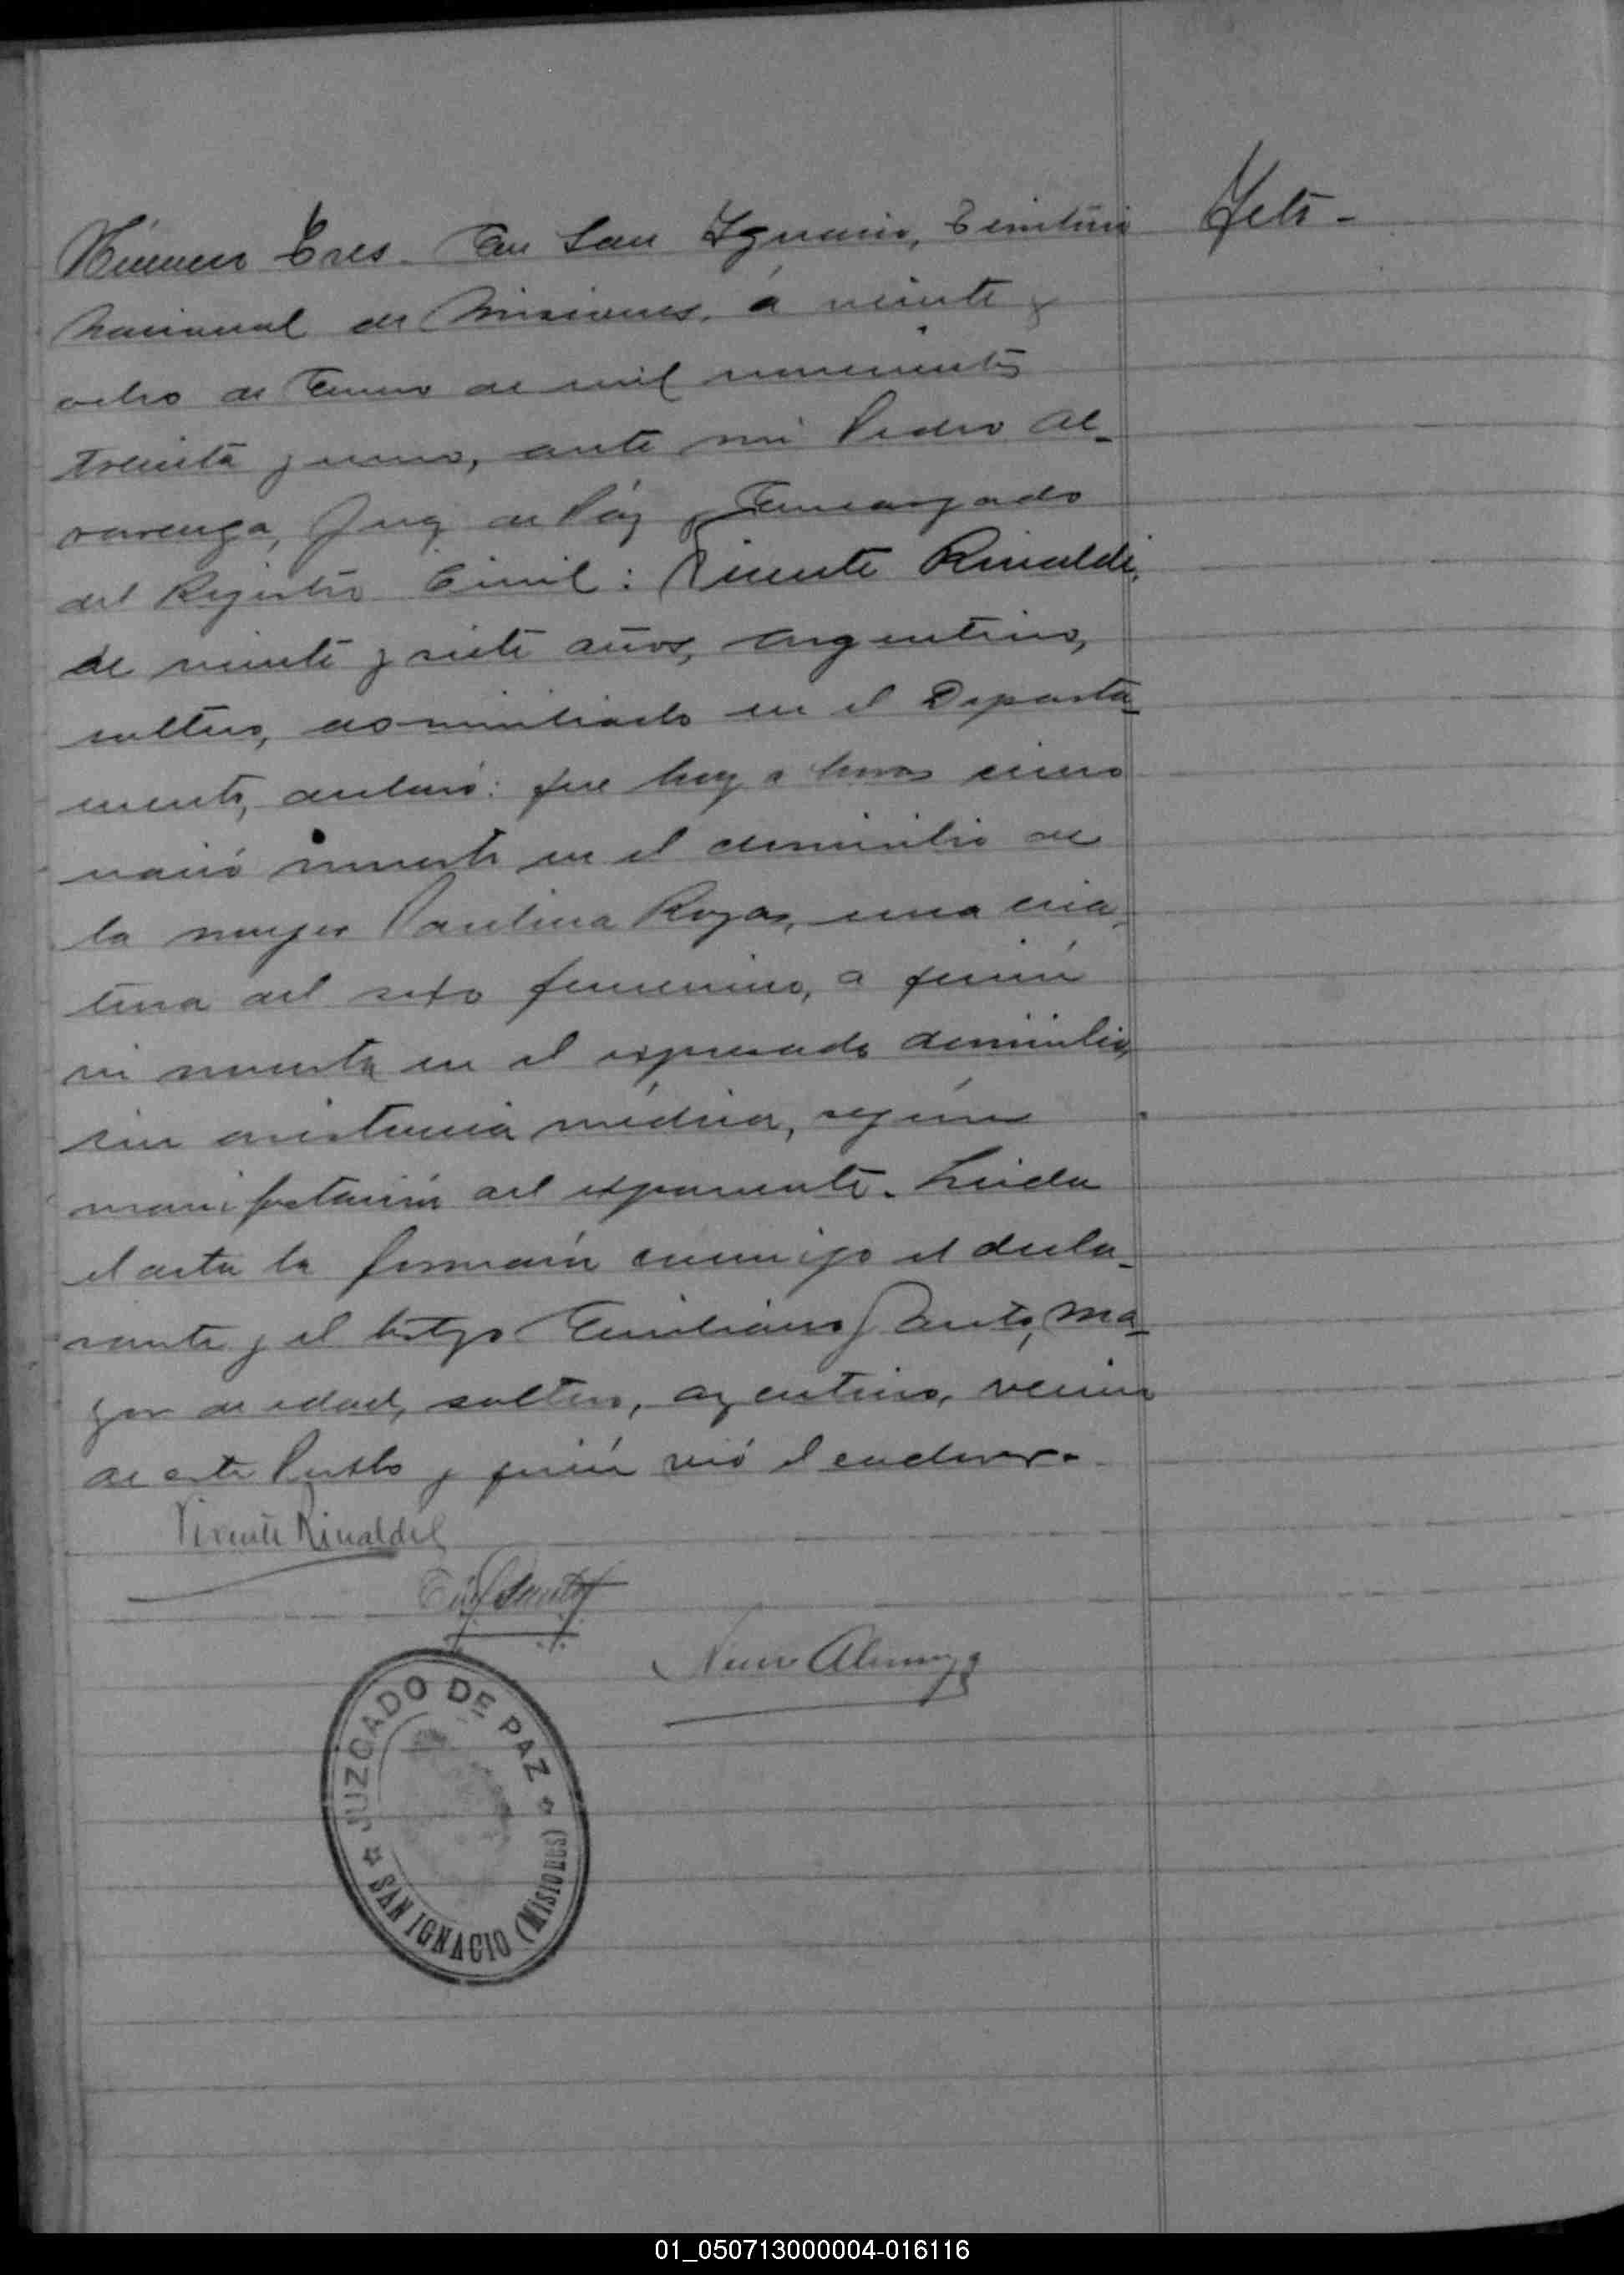 Feto -
Número Tres. En San Ignacio, Territorio
Nacional de Misiones, á veinte y
ocho de Enero de mil novecientos
treinta y uno, ante mi Pedro Al-
varenga, Juez de Páz y Encargado
del Registro Civil: Vicente Rinaldi,
de veinte y siete años, argentino,
soltero, domiciliado en el Departa-
mento, declaró: que hoy a horas cinco
nació muerta en el domicilio de
la mujer Paulina Rojas, una cria-
tura del sexo femenino, a quien
vi muerta en el expresado domicilio,
sin asistencia médica, según
manifestación del exponente. Leida
el acta la firmarón conmigo el decla-
rante y el testigo Emiliano J Santo, ma-
yor de edad, soltero, argentino, vecino
de este Pueblo y quién vió el cadaver.
Vicente Rinaldi
Pedro Alvarenga
JUZGADO DE PAZ
SAN IGNACIO (MISIONES)
01_050713000004-016116